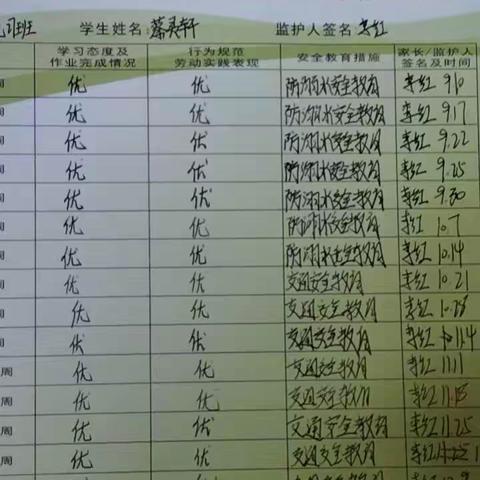 班 学生姓名:蔡灵轩 监护人签名 李红
学习态度及作业完成情况 行为规范劳动实践表现 安全教育措施 家长/监护人签名及时间
周 优 优 防溺水安全教育 李红 9.10
优 优 防溺水安全教育 李红 9.17
周 优 优 防溺水安全教育 李红 9.22
周 优 优 防溺水安全教育 李红 9.25
周 优 优 防溺水安全教育 李红 9.30
周 优 优 防溺水安全教育 李红 10.7
周 优 优 防溺水安全教育 李红 10.14
周 优 优 交通安全教育 李红 10.21
周 优 优 交通安全教育 李红 10.28
周 优 优 交通安全教育 李红 11.4
周 优 优 交通安全教育 李红 11.11
周 优 优 交通安全教育 李红 11.18
周 优 优 交通安全教育 李红 11.25
周 优 优 交通安全教育 李红